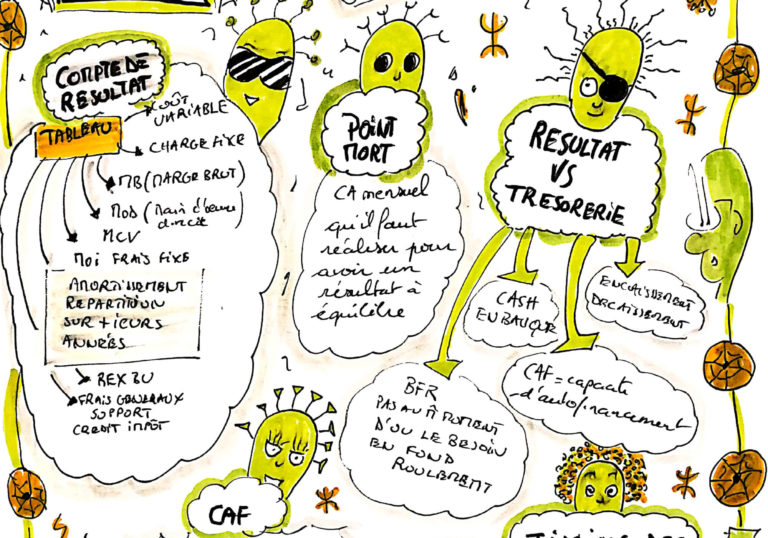 COMPTE DE
RESULTAT
TABLEAU
COÛT
VARIABLE
CHARGE FIXE
MB (MARGE BRUT)
MOD (Main d'œuvre
directe)
MCV
MOI FRAIS FIXE
AMORTISSEMENT
REPARTITION
SUR + IEURS
ANNÉES
REX BU
FRAIS GENERAUX
SUPPORT
CREDIT IMPÔT
POINT
MORT
CA mensuel
qu'il faut
réaliser pour
avoir un
résultat à
équilibre
RESULTAT
VS
TRESORERIE
CASH
EN BANQUE
ENCAISSEMENT
DECAISSEMENT
BFR
PAS AU M MOMENT
D'OU LE BESOIN
EN FOND
ROULEMENT
CAF = capacité
d'autofinancement
CAF